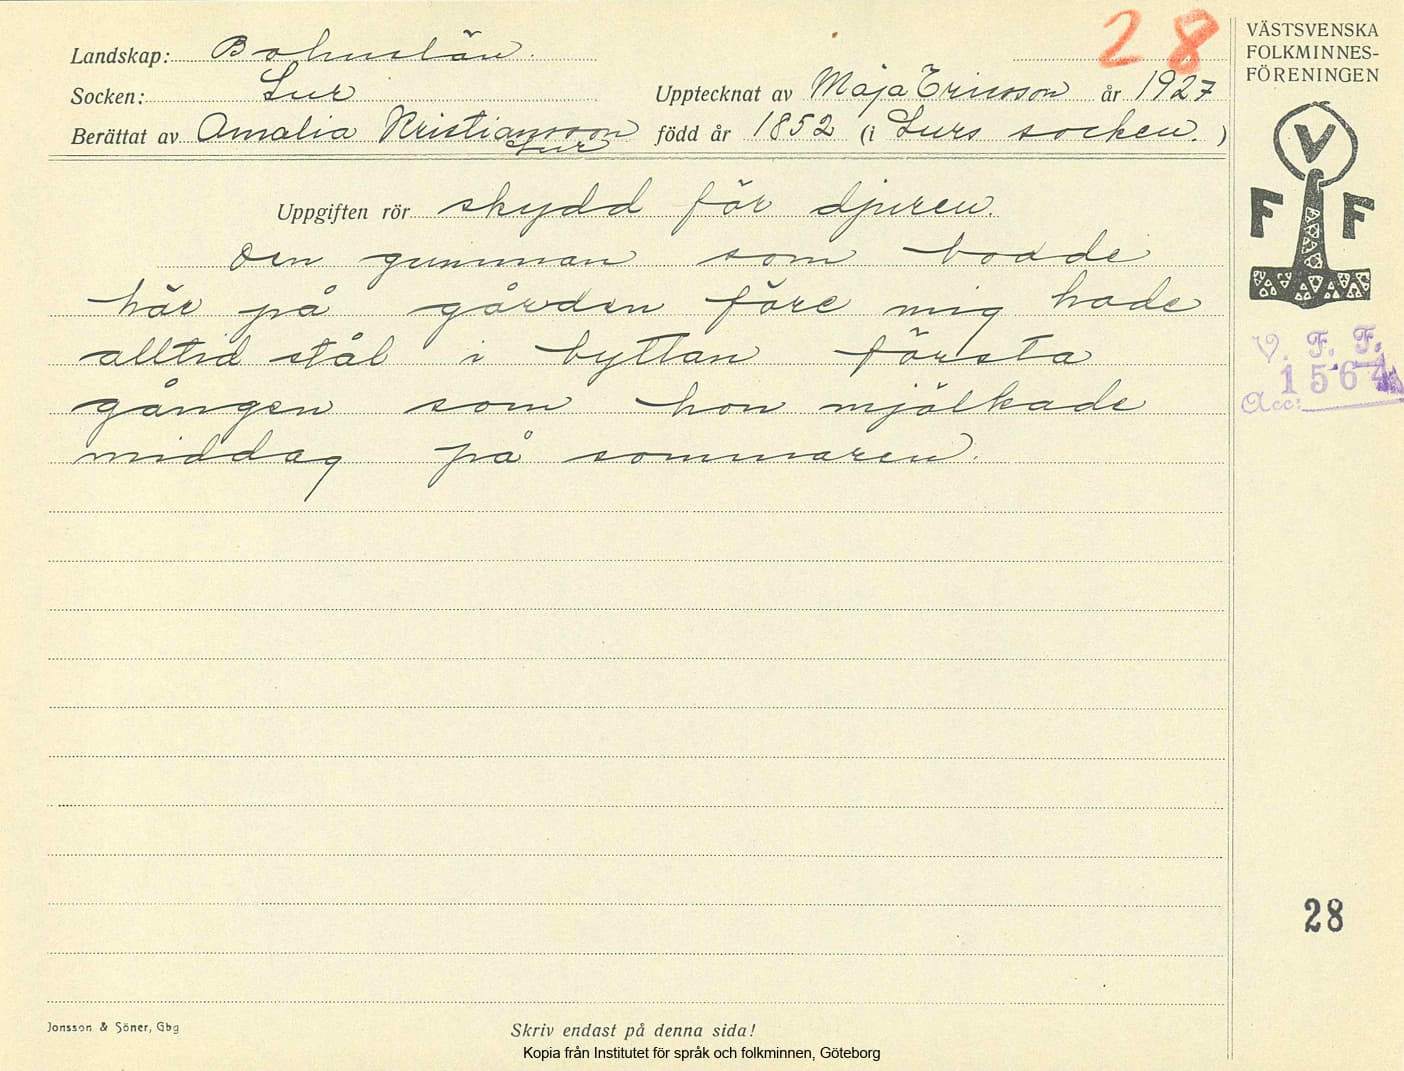 28
Landskap: Bohuslän.
Socken: Lur
Upptecknat av Maja Ericsson år 1927
Berättat av Amalia Kristiansson född år 1852 (i Lurs socken.)
Lur
Uppgiften rör skydd för djuren.
Den gumman som bodde
här på gården före mig hade
alltid stål i byttan första
gången som hon mjölkade
middag på sommaren.
VÄSTSVENSKA
FOLKMINNES-
FÖRENINGEN
V
F F
V. F. F.
1564
Acc:
28
Jonsson & Söner, Gbg
Skriv endast på denna sida!
Kopia från Institutet för språk och folkminnen, Göteborg